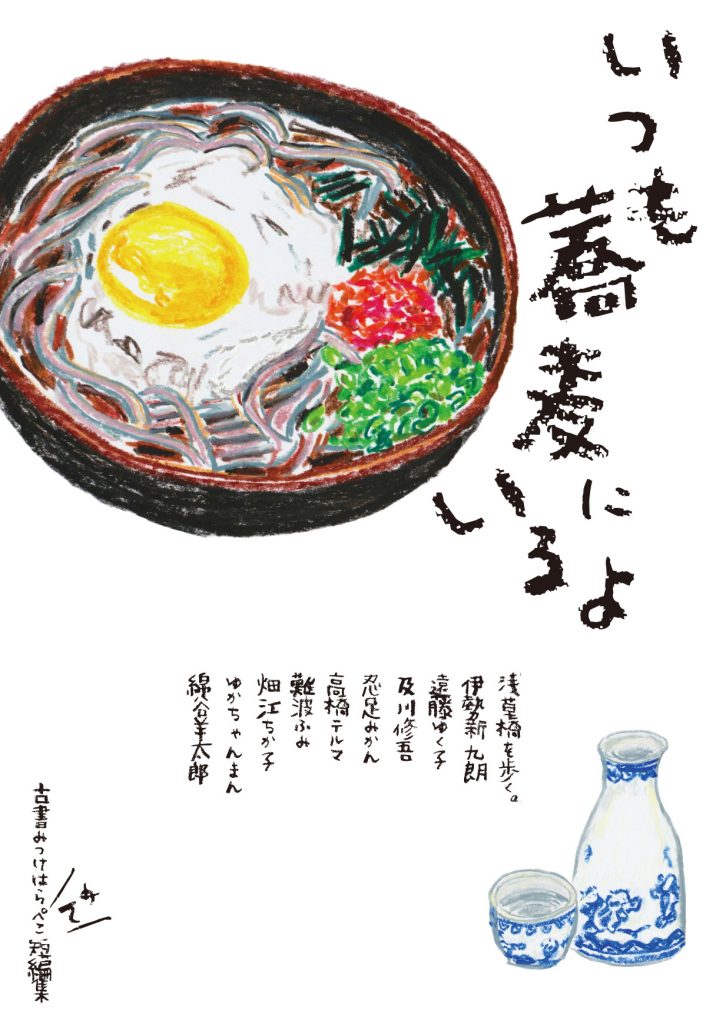 いつも
蕎麦に
いるよ
浅草橋を歩く。
伊勢新九朗
遠藤ゆく子
及川修吾
忍足みかん
高橋テルマ
難波ふみ
畑江ちか子
ゆかちゃんまん
綿谷羊太郎
古書みつけはらぺこ短編集